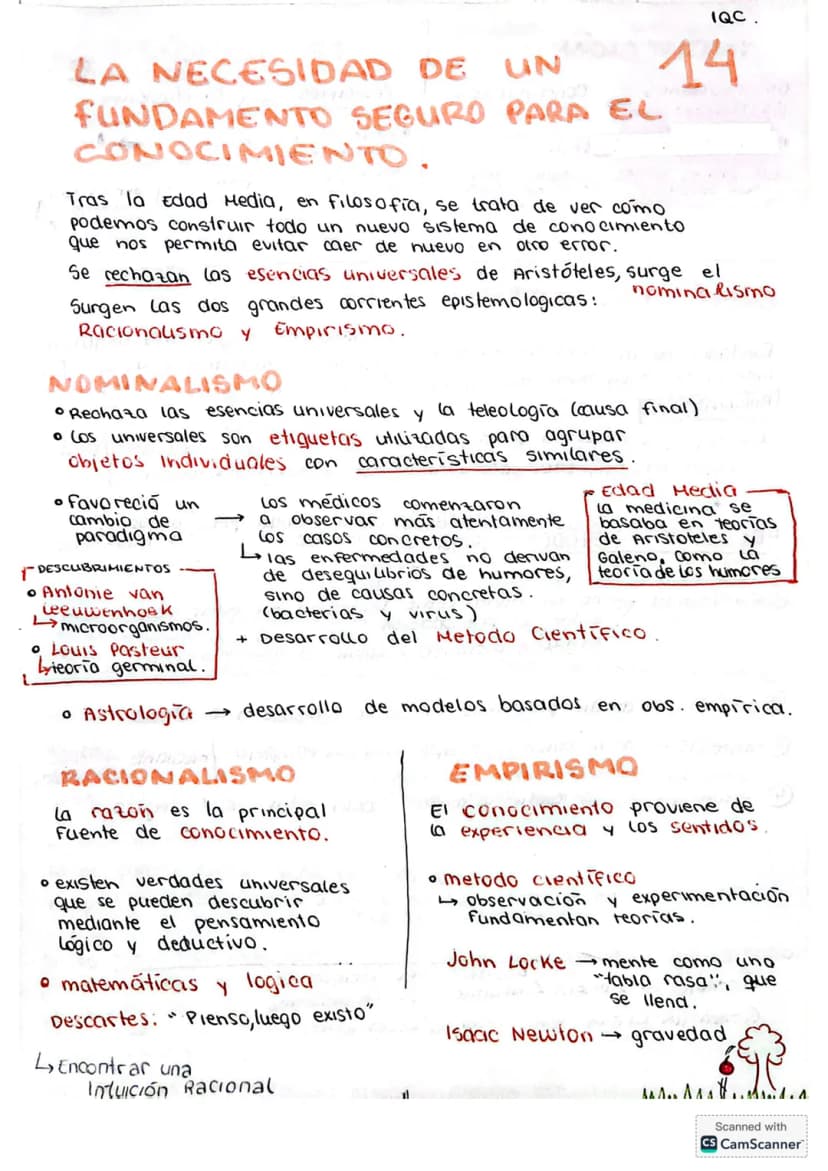 IQC.
14
LA NECESIDAD DE UN
FUNDAMENTO SEGURO PARA EL
CONOCIMIENTO.
Tras la Edad Media, en Filosofía, se trata de ver cómo
podemos construir todo un nuevo sistema de conocimiento
que nos permita evitar caer de nuevo en otro error.
Se rechazan las esencias universales de Aristóteles, surge el
nominalismo
Surgen las dos grandes corrientes epistemologicas:
Racionalismo y Empirismo.
NOMINALISMO
• Rechaza las esencias universales y la teleología (causa final)
• Los universales son etiquetas utilizadas para agrupar
objetos individuales con características similares.
• Favoreció un
cambio de
paradigma
→ Los médicos comenzaron
a observar más atentamente
los casos concretos.
↳ las enfermedades no derivan
de desequilibrios de humores,
sino de causas concretas.
(bacterias y virus)
+ Desarrollo del Metodo Científico.
Edad Media
la medicina se
basaba en teorías
de Aristoteles y
Galeno, como la
teoría de los humores
DESCUBRIMIENTOS
• Antonie van
Leeuwenhoek
↳ microorganismos.
• Louis Pasteur
↳ teoría germinal.
• Astrología → desarrollo de modelos basados en obs. empírica.
RACIONALISMO
La razón es la principal
Fuente de conocimiento.
• existen verdades universales
que se pueden descubrir
mediante el pensamiento
lógico y deductivo.
• matemáticas y logica
Descartes: "Pienso, luego existo"
↳ Encontrar una
Intuición Racional
EMPIRISMO
El conocimiento proviene de
la experiencia y los sentidos.
• metodo científico
↳ observación y experimentación
fundamentan teorías.
John Locke → mente como una
"tabla rasa", que
se llena.
Isaac Newton → gravedad
Scanned with
CS CamScanner